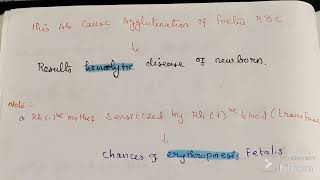 This Ab Cause Agglutination of foetus RBC
↓
Results hemolytic disease of newborn.
Note :-
a Rh(-)ve mother Sensitized by Rh(+)ve blood (transfus
↓
chances of erythropnesis Fetalis